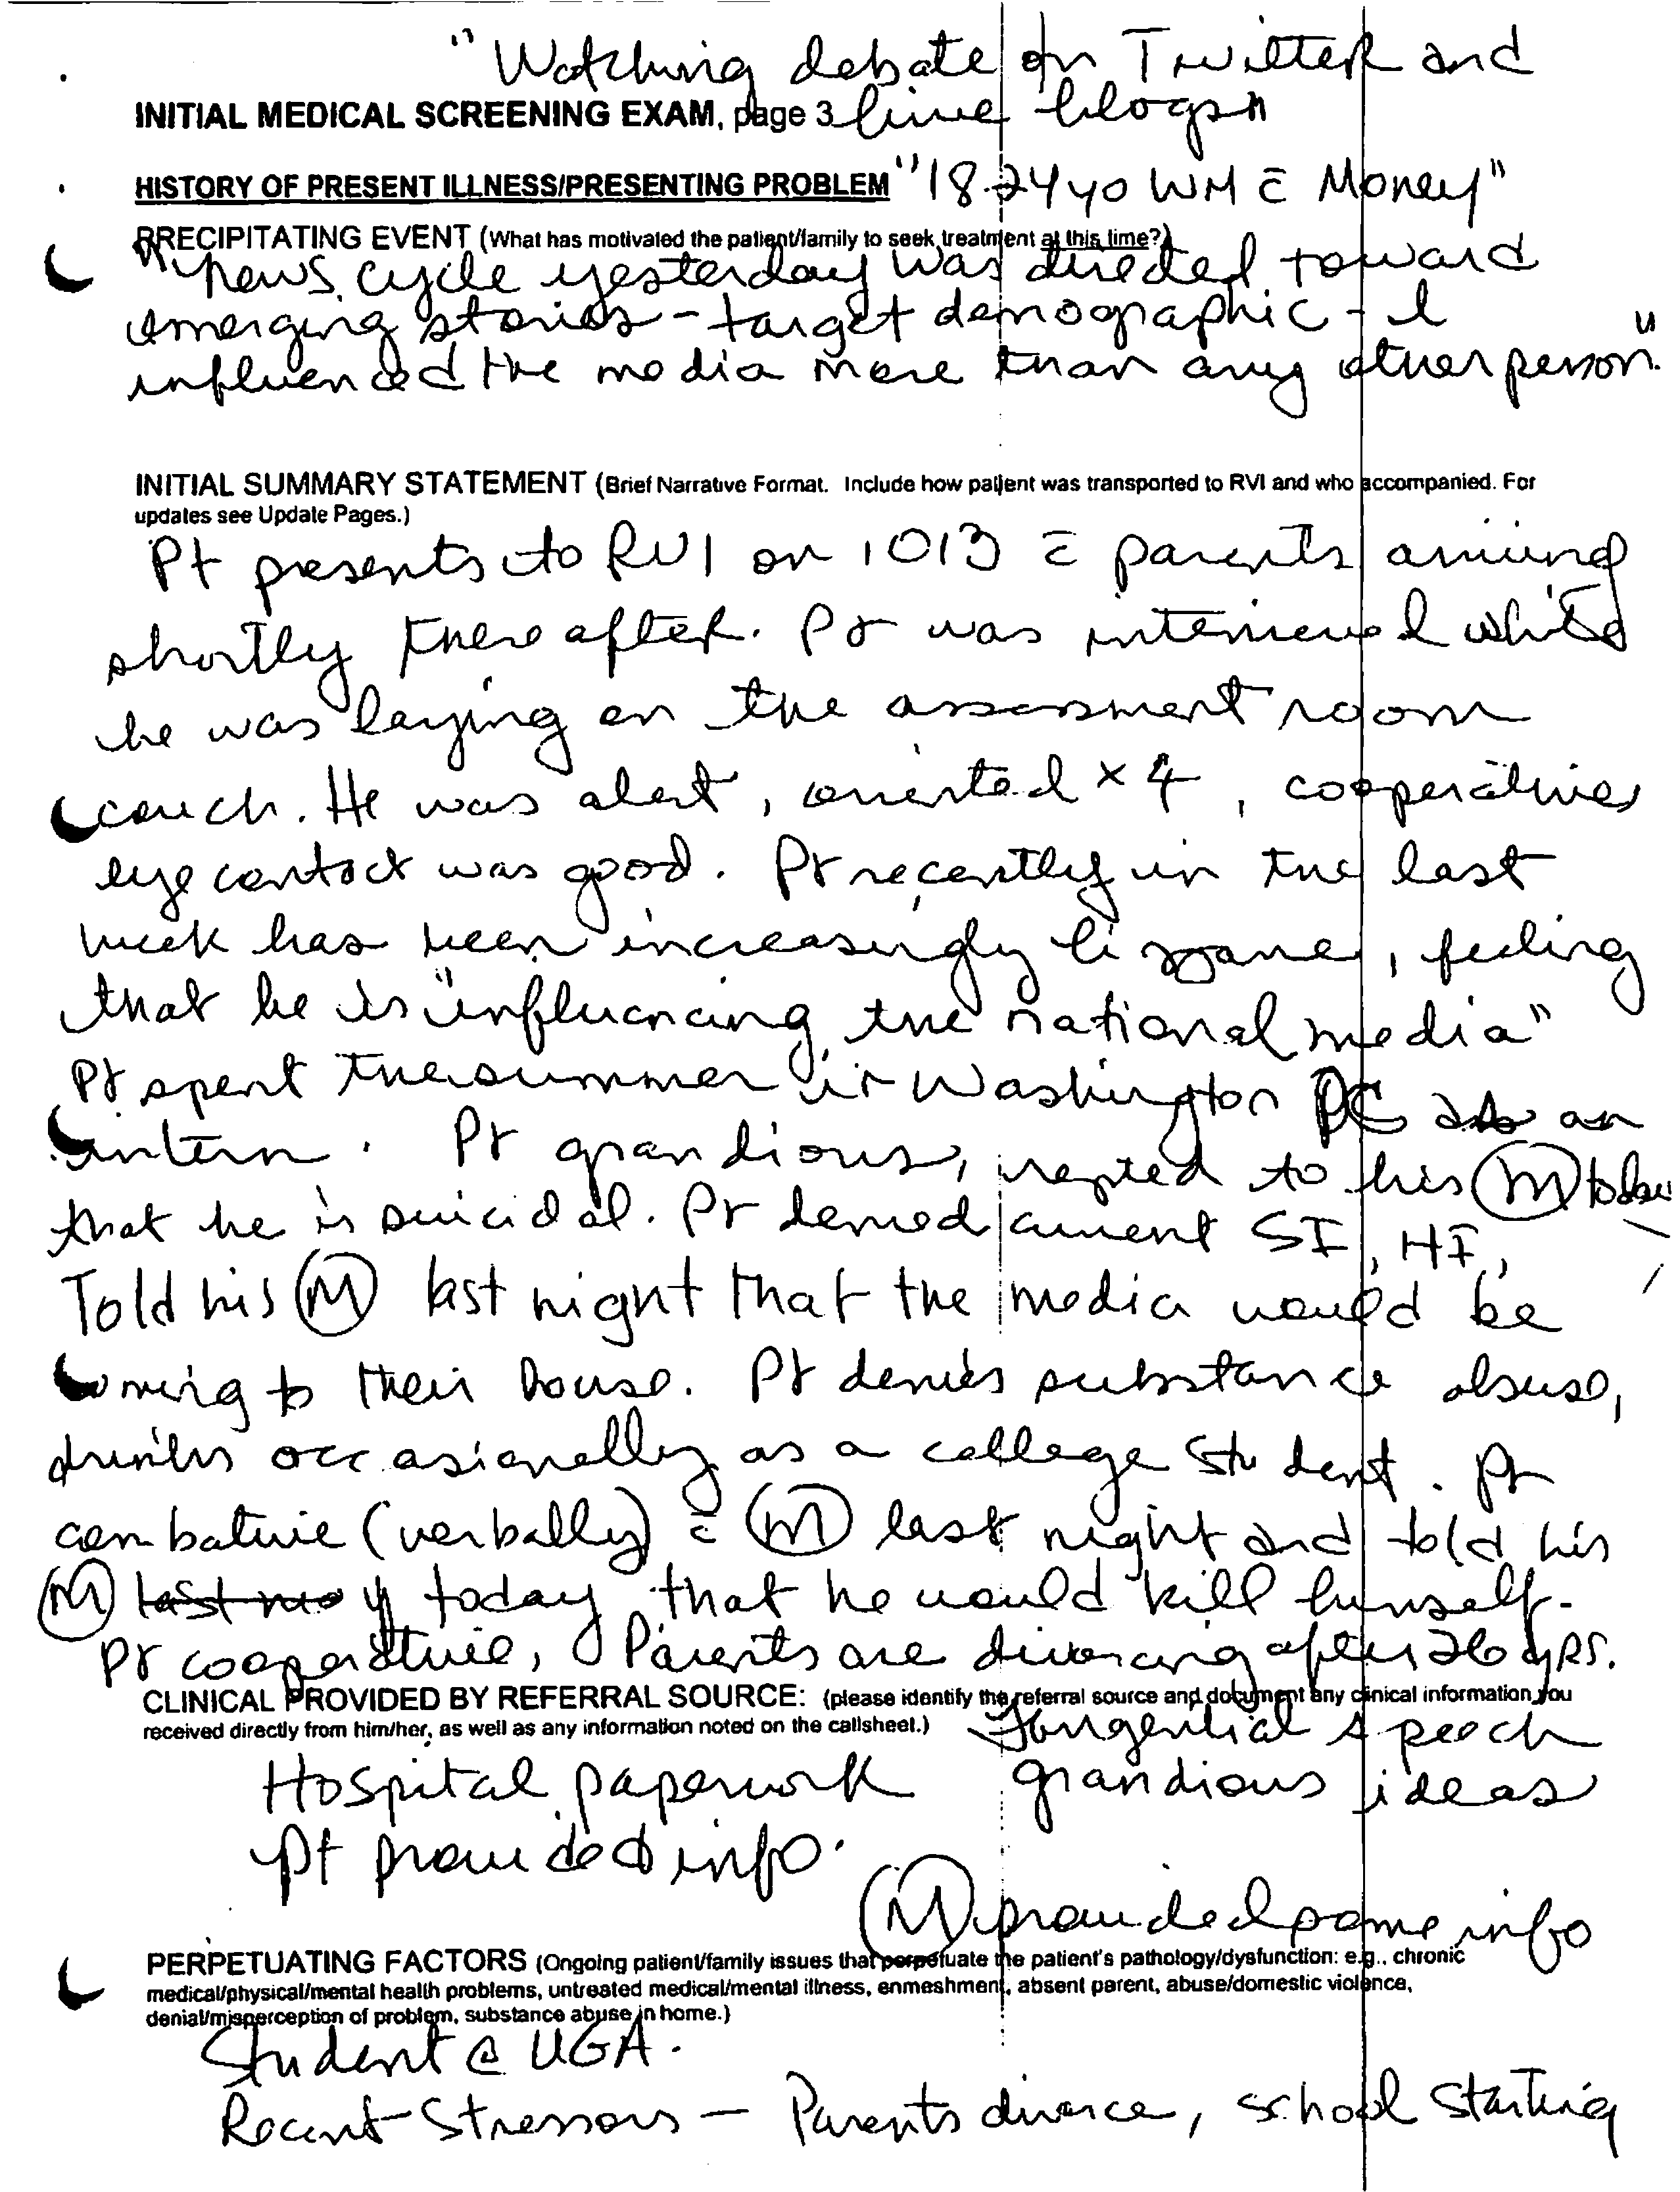 "Watching debate on Twitter and
INITIAL MEDICAL SCREENING EXAM, page 3 live blogs"
HISTORY OF PRESENT ILLNESS/PRESENTING PROBLEM "18-24 yo WM c̄ Money"
PRECIPITATING EVENT (What has motivated the patient/family to seek treatment at this time?)
"news cycle yesterday was directed toward
emerging stories - target demographic - I
influenced the media more than any other person."
INITIAL SUMMARY STATEMENT (Brief Narrative Format. Include how patient was transported to RVI and who accompanied. For
updates see Update Pages.)
Pt presents to RVI on 1013 c̄ parents arriving
shortly thereafter. Pt was interviewed while
he was laying on the assessment room
couch. He was alert, oriented x 4, cooperative,
eye contact was good. Pt recently in the last
week has been increasingly bizzare, feeling
that he is "influencing the national media"
Pt spent the summer in Washington DC as an
intern. Pt grandious, to his (M) today
that he is suicidal. Pt denied current SI, HI,
Told his (M) last night that the media would be
coming to their house. Pt denies substance abuse,
drinks occasionally as a college student. Pt
combative (verbally) c̄ (M) last night and told his
(M) today that he would kill himself.
Pt cooperative, Parents are divorcing after 26 yrs.
CLINICAL PROVIDED BY REFERRAL SOURCE: (please identify the referral source and document any clinical information you
received directly from him/her, as well as any information noted on the callsheet.) Tangential speech
Hospital paperwork grandious ideas
Pt provided info.
(M) provided some info
PERPETUATING FACTORS (Ongoing patient/family issues that perpetuate the patient's pathology/dysfunction: e.g., chronic
medical/physical/mental health problems, untreated medical/mental illness, enmeshment, absent parent, abuse/domestic violence,
denial/misperception of problem, substance abuse in home.)
Student @ UGA.
Recent Stressors — Parents divorce, school starting